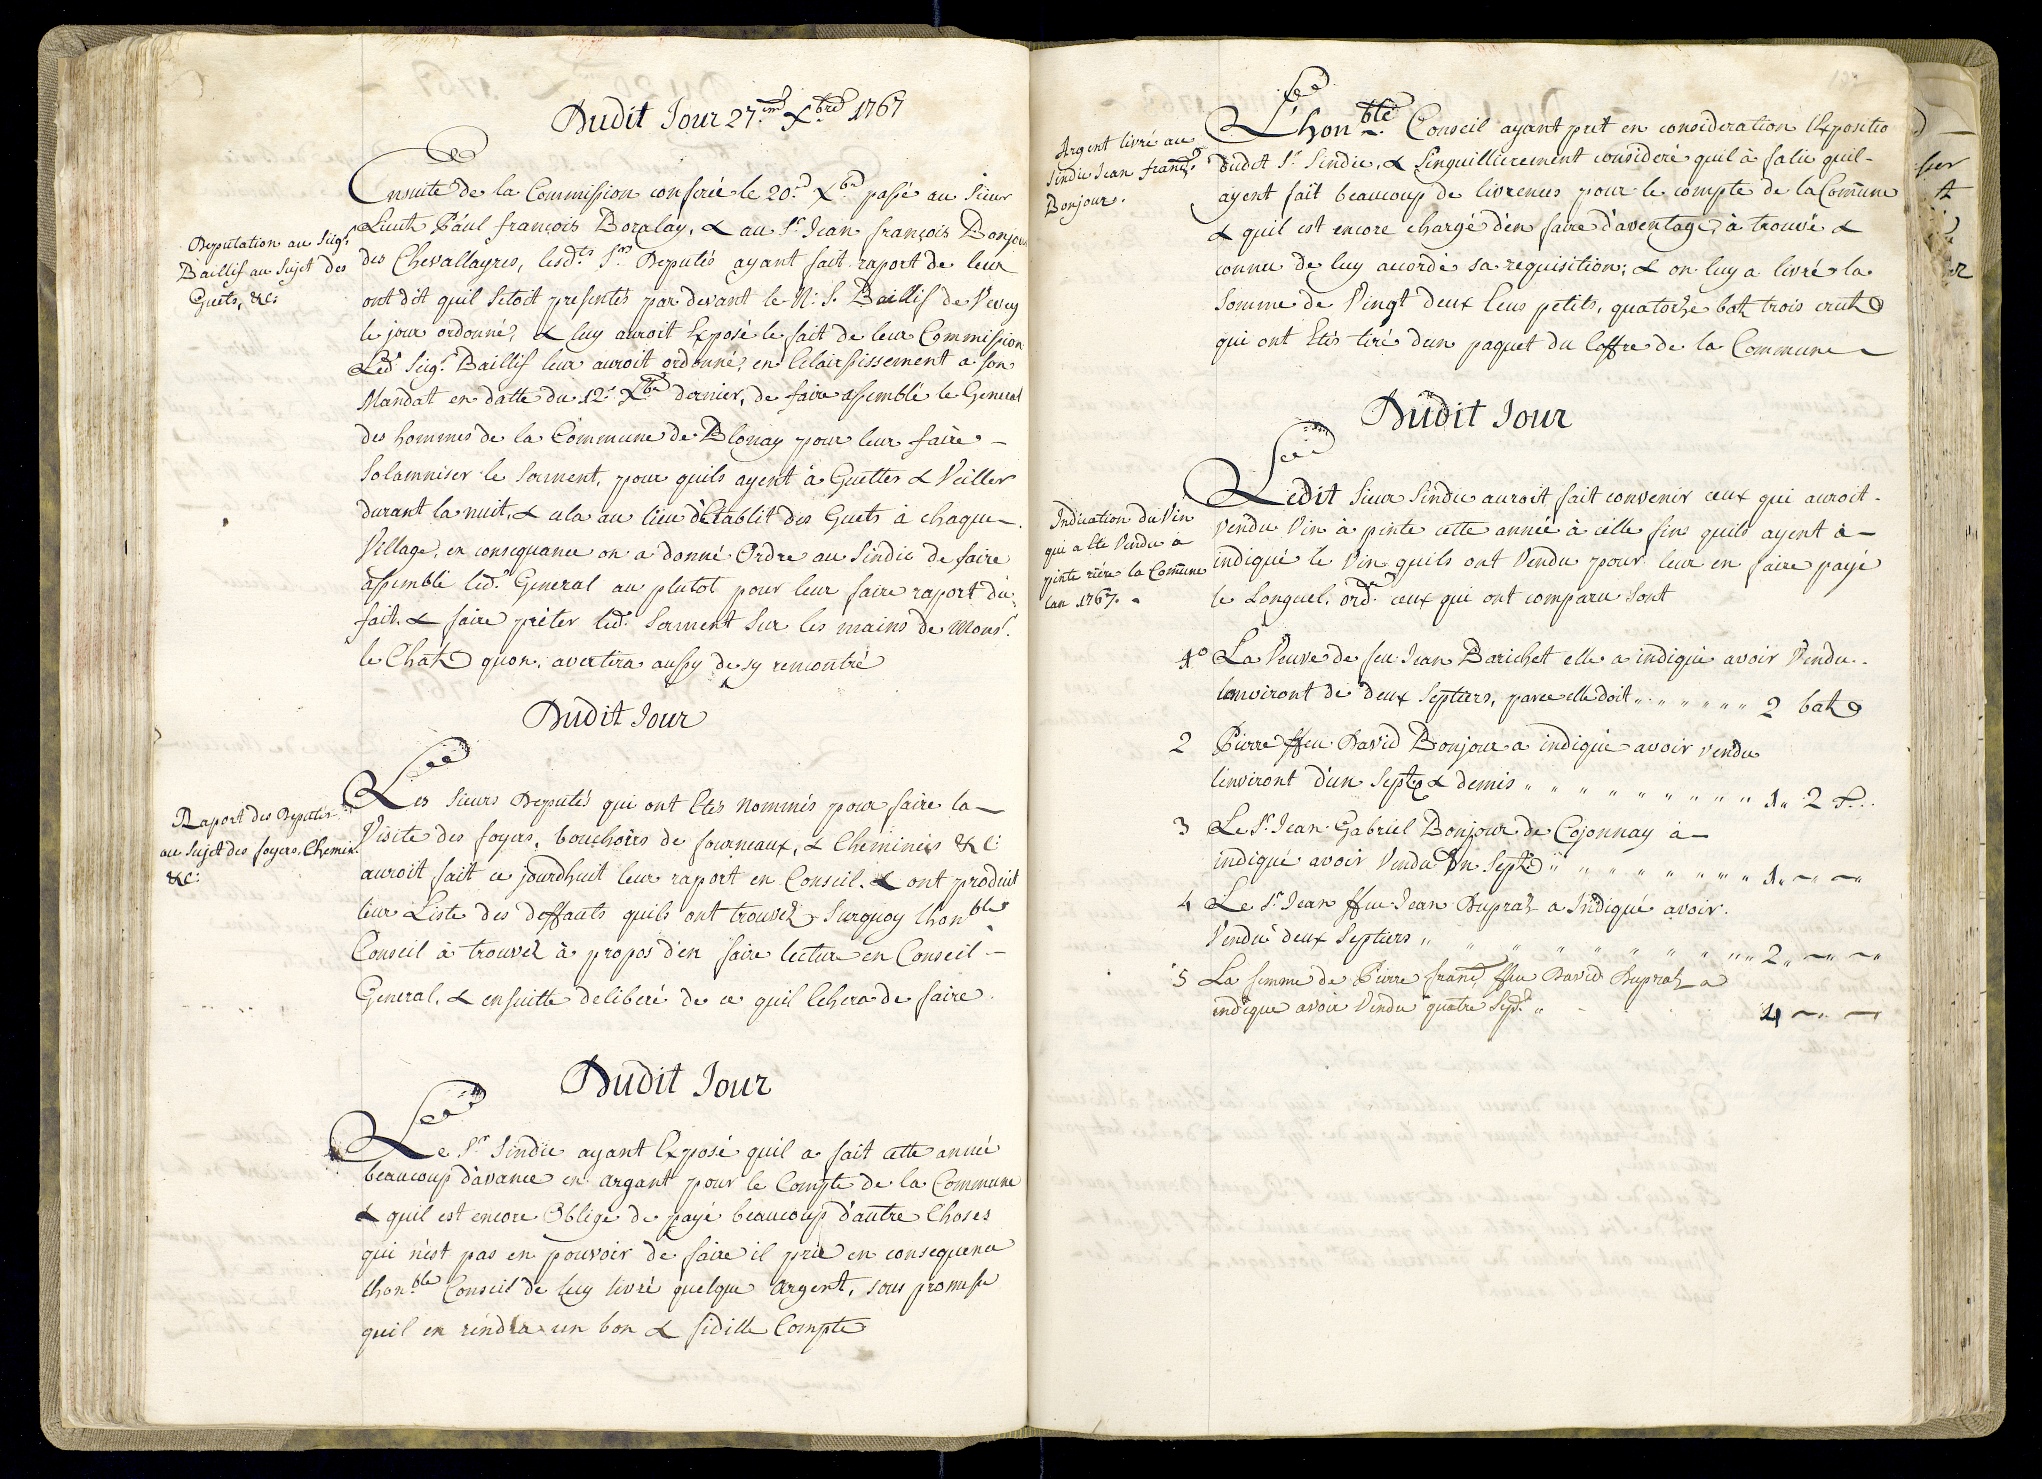 Dudit Jour 27.me Xbre 1767
Deputation au Seigr.
Baillif au Sujet des
Guets, &c:
Ensuite de la Commission conferée le 20.e Xbre passé au Sieur
Lieutt Paul françois Boralay, & au Sr. Jean françois Bonjour
des Chevallayres, lesdts. Srs Deputés ayant fait raport de leur
ont dit quil Setoit presentés par devant le N. S. Baillif de Vevey
le jour ordonné, & luy auroit Exposé le fait de leur Commission
Led. Seigr. Baillif leur auroit ordonné, en Eclaircissement a son
Mandat en datte du 12.e Xbre dernier, de faire assemblé le General
des hommes de la Commune de Blonay pour leur faire
Solamniser le Serment, pour quils ayent à Guetter & Veiller
durant la nuit, & cela au lieu d'Etablit des Guets à chaque
Village, en consequance on a donné Ordre au Sindic de faire
assemblé led. General au plutot pour leur faire raport du
fait. & faire prêter led. Serment Sur les mains de Monsr.
le Chatn quon avertira aussy de sy rencontré
Dudit Jour
Raport des Deputés
au Sujet des foyers, Chemin.
&c:
Les Sieurs Deputés qui ont Etés nommés pour faire la
Visite des foyers, bouchoirs de fourneaux, & Cheminées &c:
auroit fait ce jourdhuit leur raport en Conseil. & ont produit
leur Liste des deffauts quils ont trouvez, Surquoy lhonble
Conseil à trouvez à propos d'en faire lecture en Conseil
General, & ensuitte deliberé de ce quil Echera de faire.
Dudit Jour
Le Sr Sindic ayant Exposé quil a fait cette année
beaucoup d'avance en argant pour le Compte de la Commune
& quil est encore Obligé de payé beaucoup d'autre Choses
qui n'est pas en pouvoir de faire il prie en consequence
lhonble Conseil de luy livré quelque Argent, sous promesse
quil en rendra un bon & fidille Compte
Argent livré au
Sindic Jean françs.
Bonjour.
L'honble Conseil ayant prit en consideration l'Expositio
dudit Sr. Sindic, & Singuillierement consideré quil à falu quil
ayent fait beaucoup de livrences pour le compte de la Comune
& quil est encore chargé d'en faire d'aventage, à trouvé &
connu de luy acordé sa requisition; & on luy a livré la
Somme de Vingt deux Ecus petits, quatorze batz trois crutz
qui ont Etés tiré d'un paquet du Coffre de la Commune
Dudit Jour
Indication du Vin
qui a Eté Vendu à
pinte riére la Comune
lan 1767.
Ledit Sieur Sindic auroit fait convenir ceux qui auroit
Vendu Vin à pinte cette année à celle fin quils ayent à
indiqué le Vin quils ont Vendu pour leur en faire payé
le Longuel. ordre ceux qui ont comparu Sont
1° La Veuve de feu Jean Barichet elle a indiqué avoir Vendu
Lenviront de deux Septiers, parce elle doit " " " " " " 2 batz
2 Pierre ffeu David Bonjour a indiqué avoir vendu
lenviront d'un Septr & demis " " " " " " " " " 1 " 2 S..
3 Le Sr. Jean Gabriel Bonjour de Cojonnay à
indiqué avoir Vendu Un Septr " " " " " " " " 1 " — " — "
4 Le Sr. Jean ffeu Jean Dupraz a Indiqué avoir
Vendu deux Septiers " " " " " " " " " 2 " — " — "
5 La femme de Pierre franç. ffeu David Dupraz a
indiqué avoir Vendu quatre Sept. " 4 — " —